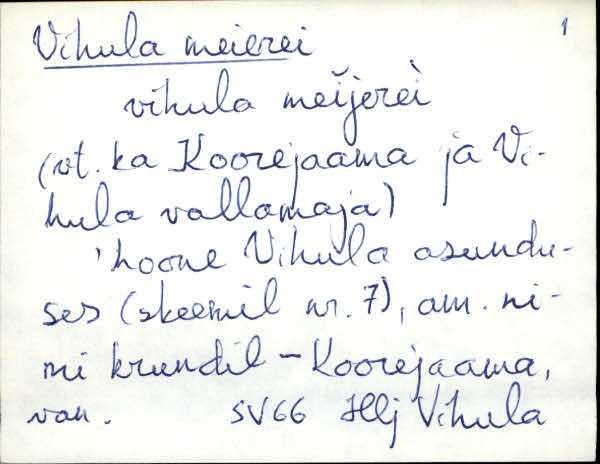 1
Vihula meierei
vihula meĭjerèi
(vt. ka Koorejaama ja Vi-
hula vallamaja)
'hoone Vihula asundu-
ses (skeemil nr. 7), am. ni-
mi krundil - Koorejaama,
van. SV66 Hlj Vihula